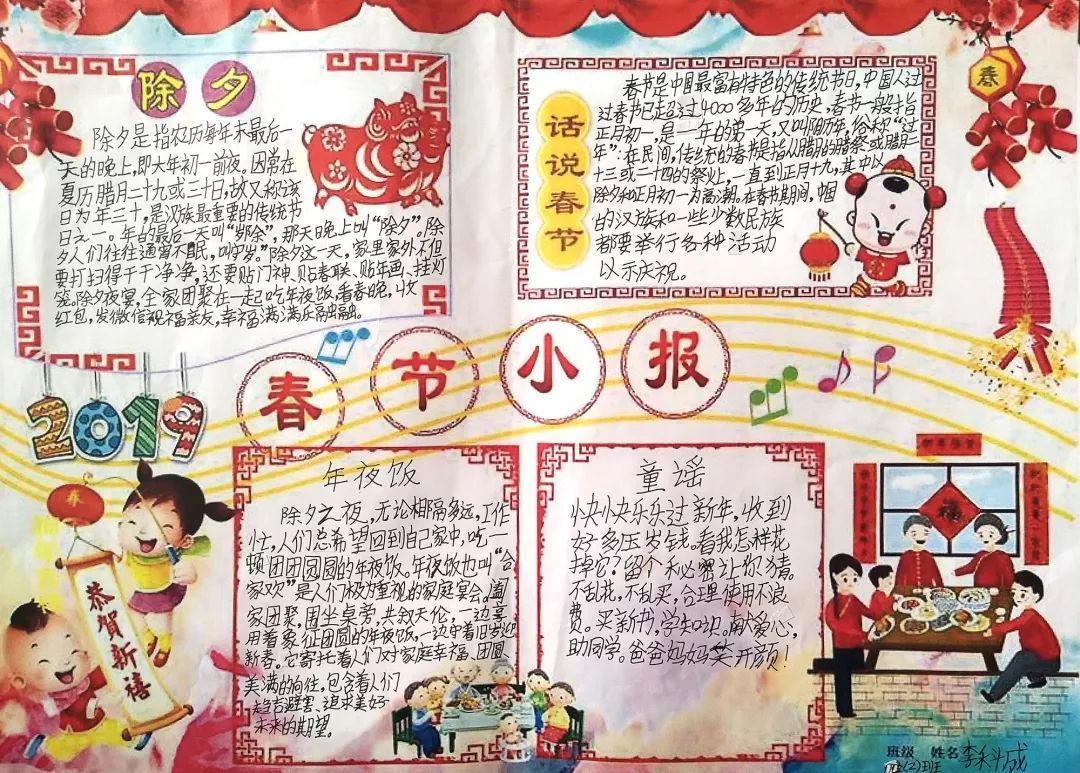 除夕
除夕是指农历每年末最后一
天的晚上,即大年初一前夜。因常在
夏历腊月二十九或三十日,故又称该
日为年三十,是汉族最重要的传统节
日之一。年的最后一天叫“岁除”,那天晚上叫“除夕”。除
夕人们往往通宵不眠,叫守岁。“除夕这一天,家里家外不但
要打扫得干干净净,还要贴门神、贴春联、贴年画、挂灯
笼。除夕夜宴,全家团聚在一起吃年夜饭,看春晚,收
红包,发微信祝福亲友,幸福满满乐融融。
话说春节
春节是中国最富有特色的传统节日,中国人过
过春节已超过4000多年的历史,春节一般指
正月初一,是一年的第一天,又叫阴历年,俗称“过
年”。在民间,传统的春节是指从腊月的腊祭或腊月二
十三或二十四的祭灶,一直到正月十九,其中以
除夕和正月初一为高潮。在春节期间,
的汉族和一些少数民族
都要举行各种活动
以示庆祝。
春
2019
春节小报
年夜饭
除夕之夜,无论相隔多远,工作
人们总希望回到自己家中,吃一
顿团团圆圆的年夜饭。年夜饭也叫“合
家欢”是人们极为重视的家庭宴会。阖
家团聚,围坐桌旁,共叙天伦,一边享
用着象征团圆的年夜饭,一边守着旧岁迎
新春。它寄托着人们对家庭幸福、团圆、
美满的向往,包含着人们
趋吉避害、追求美好
未来的期望。
童谣
快快乐乐过新年,收到
好多压岁钱。看我怎样花
掉它?留个秘密让你猜。
不乱花,不乱买,合理使用不浪
费。买新书,学知识。献爱心,
助同学。爸爸妈妈笑开颜!
春
恭贺新禧
福
班级 姓名李科成
(2)班